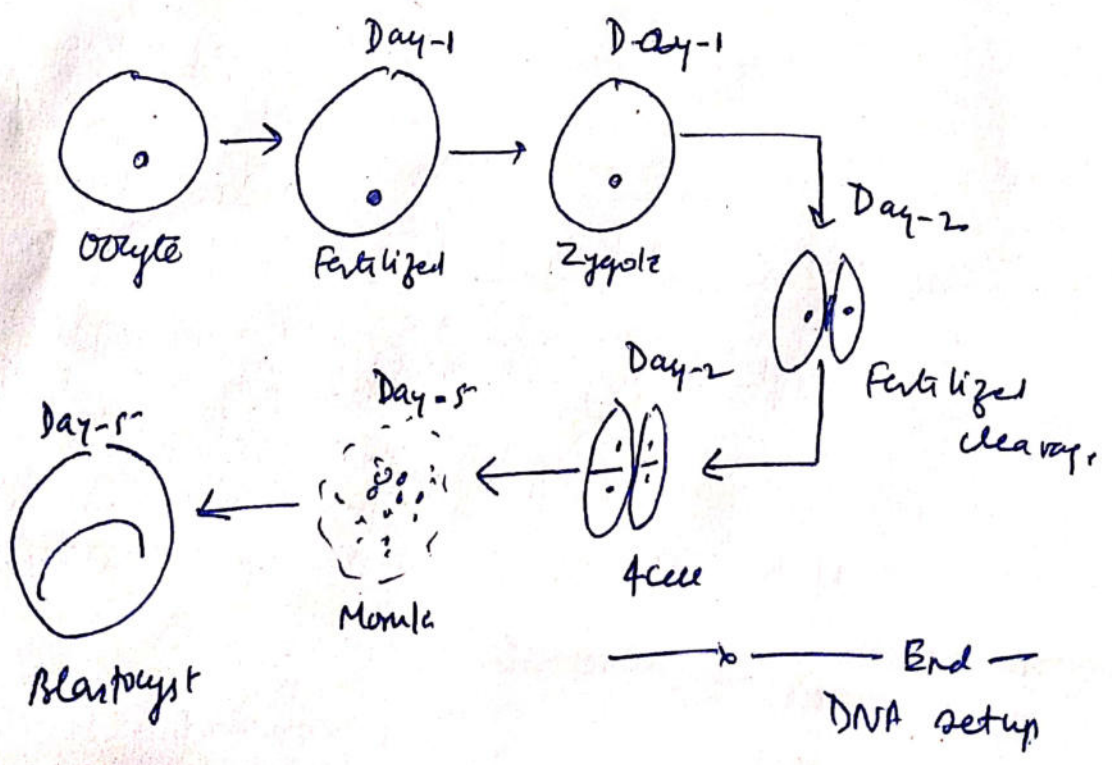 Day-1
Day-1
Oocyte
Fertilized
Zygote
Day-2
Fertilized
cleavage
Day-2
4 cell
Day-5
Morula
Day-5
Blastocyst
End
DNA setup